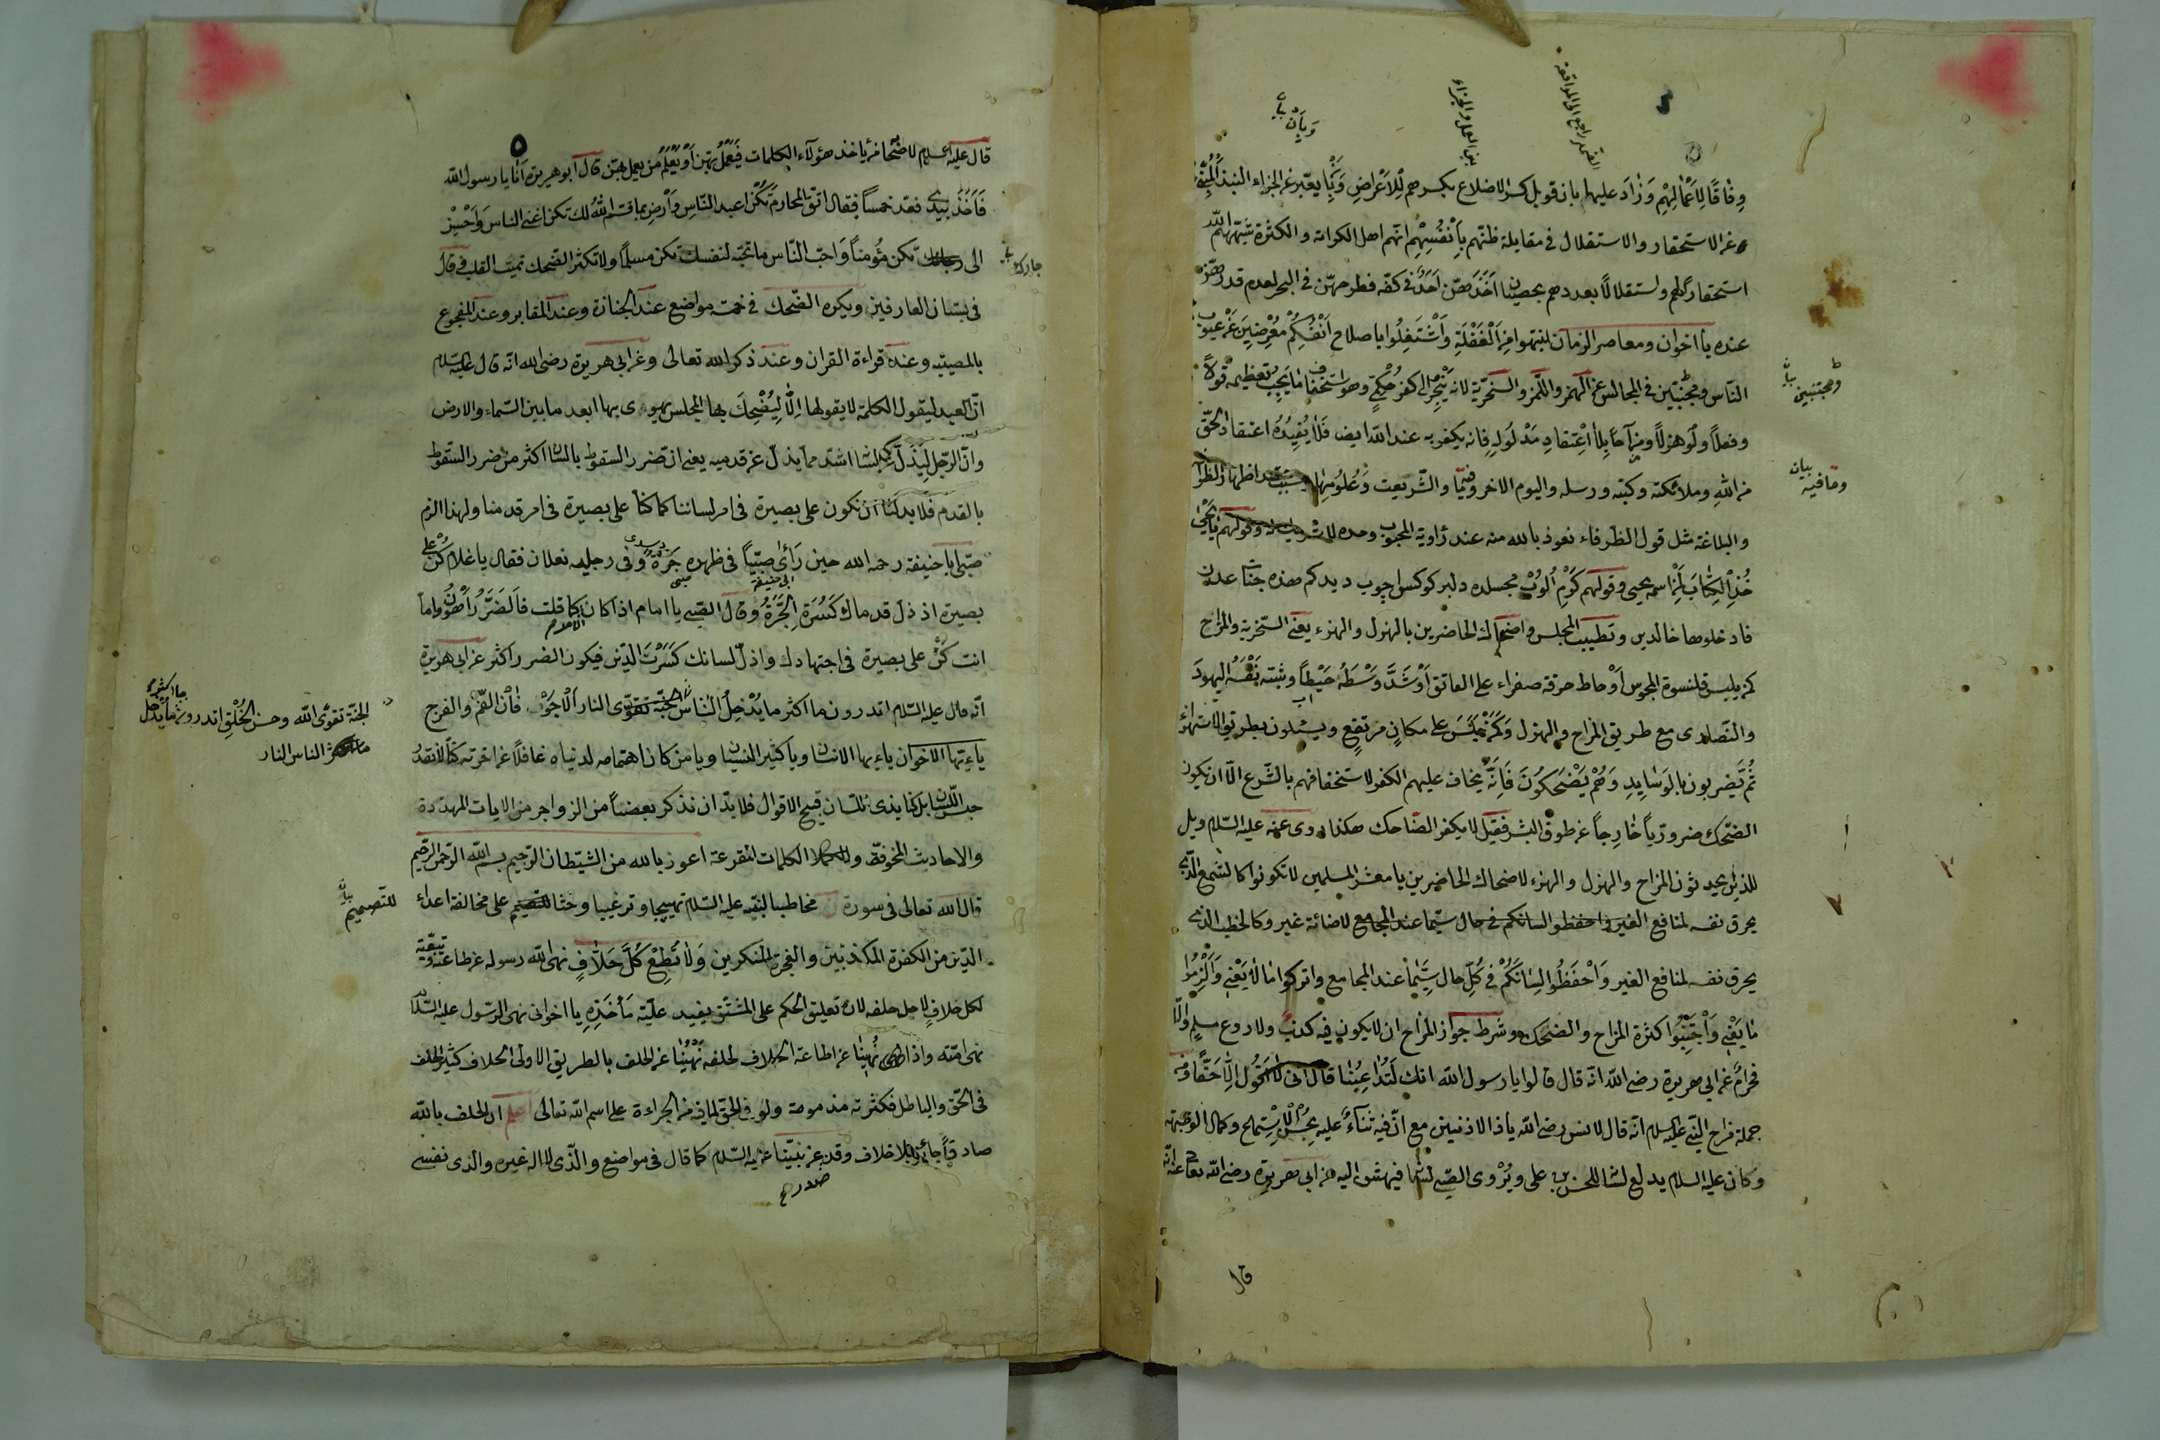 وفاقا لاعمالهم وزاد عليها بان قوبل
عن الاستحقار والاستقلال في مقابلة ظنهم بانفسهم انهم اهل الكرامة والكثرة
استحقار لهم واستقلالا بعددهم بحصيات اخذهن احد في كفه فطرحهن في البحر لعدم قدرهن
عنده يا اخوان ومعاصر الزمان لنتبهوا من الغفلة واشتغلوا باصلاح انفسكم معرضين عن عيوب
الناس ومجتنبين في المجالس عن الهمز واللمز والسخرية لانه ينجر الى كفر حكمي وهو استخفاف ما يجب تعظيمه قولا
وفعلا ولو هزلا ومزاحا بلا اعتقاد مدلوله فانه يكفر به عند الله ايضا فلا يفيده اعتقاد الحق
من الله وملائكته وكتبه ورسله واليوم الاخر والشريعة وعلومها
والبلاغة مثل قول الظرفاء نعوذ بالله منه عند زاوية المحبوب وحده وقولهم يا يحيى
خذ الكتاب لمن اسمه يحيى وقولهم
فادخلوها خالدين وتطييب المجلس واضحاك الحاضرين بالهزل والهزء يعني السخرية والمزاح
كمن يلبس قلنسوة المجوس او خاط خرقة صفراء على العاتق او شد وسطه خيطا وشبه نفسه اليهود
والنصارى مع طريق المزاح والهزل وكمن يجلس على مكان مرتفع ويسئلون بطريق الاستهزاء
ثم يضربون بالوسايد وهم يضحكون فانه يخاف عليهم الكفر لاستخفافهم بالشرع الا ان يكون
الضحك ضروريا خارجا عن طوق البشر فقيل لا يكفر الضاحك هكذا روى عنه عليه السلام ويل
للذين يحدثون المزاح والهزل والهزء لاضحاك الحاضرين يا معشر المسلمين لا تكونوا كالشمع الذي
يحرق نفسه لمنافع الغير واحفظوا لسانكم في حال سيما عند المجامع لاضائة غير وكالحطب الذي
يحرق نفسه لمنافع الغير واحفظوا لسانكم في كل حال سيما عند المجامع واتركوا ما لا يعني والزموا
ما يغني واجتنبوا كثرة المزاح والضحك وشرط جواز المزاح ان لا يكون فيه كذب ولا روع مسلم والا
فحرام عن ابي هريرة رضي الله انه قال قالوا يا رسول الله انك لتداعبنا قال اني لا اقول الا حقا ومن
جملة مزاح النبي عليه السلام انه قال لانس رضي الله يا ذا الاذنين مع ان فيه ثناء عليه بحسن الاستماع وكمال
وكان عليه السلام يدلع لسانه للحسن بن علي ويروى الصبي لسانه فيهش اليه عن ابي هريرة رضي الله تعالى عنه انه
قال
بين العمل والجزاء
ومجتنبين بيان
وما فيه بيان
٥
قال عليه السلام لاصحابه من ياخذ هؤلاء الكلمات فيعمل بهن او يعلم من يعمل بهن قال ابو هريرة انا يا رسول الله
فاخذ بيدي فعد خمسا فقال اتق المحارم تكن اعبد الناس وارض بما قسم الله لك تكن اغنى الناس واحسن
الى تكن مؤمنا واحب الناس ما تحبه لنفسك تكن مسلما ولا تكثر الضحك تميت القلب قال
في بستان العارفين ويكره الضحك في خمسة مواضع عند الجنازة وعند المقابر وعند المفجوع
بالمصيبة وعند قراءة القران وعند ذكر الله تعالى وعن ابي هريرة رضي الله انه قال عليه السلام
ان العبد ليقول الكلمة لا يقولها الا ليضحك بها المجلس يهوى بها ابعد ما بين السماء والارض
وان الرجل ليذل عن لسانه اشد مما يذل عن قدميه يعني ان ضرر السقوط باللسان اكثر من ضرر السقوط
بالقدم فلا بد لنا ان نكون على بصيرة في امر لساننا كما كنا على بصيرة في امر قدمنا ولهذا الزم
صبي ابا حنيفة رحمه الله حين رأى صبيا في ظهره جرة وفي رجليه نعلان فقال يا غلام كن على
بصيرة اذ ذل قدماك كسرت الجرة وقال الصبي يا امام اذا كان كما قلت فالضرر اهون واما
انت كن على بصيرة في اجتهادك واذل لسانك كسرت الدين فيكون الضرر اكثر عن ابي هريرة
انه قال عليه السلام اتدرون ما اكثر ما يدخل الناس النار الاجوفان الفم والفرج
يا ايتها الاخوان يا ايها الانسان ويا كثير النسيان ويا من كان اهتمامه لدنياه غافلا عن اخرته كنا لا نقدر
حبس اللسان بل كنا يذى نلسان قبيح الاقوال فلا بد ان نذكر بعضا من الزواجر من الايات المهددة
والاحاديث المخوفة والكلمات المقرعة اعوذ بالله من الشيطان الرجيم بسم الله الرحمن الرحيم
قال الله تعالى في سورة ن مخاطبا لنبيه عليه السلام تهييجا وترغيبا وحثا للتصميم على مخالفة اعداء
الدين من الكفرة المكذبين والفجرة المنكرين ولا تطع كل حلاف نهى الله رسوله عن طاعته
لكل حلاف لاجل حلفه لان تعليق الحكم على المشتق يفيد علية مأخذه يا اخواني نهي الرسول عليه السلام
نهى امته واذا نهينا عن اطاعة الحلاف لحلفه نهينا عن الحلف بالطريق الاولى الحلاف كثير الحلف
في الحق والباطل فكثرته مذمومة ولو في الحق لما فيه من الجراءة على اسم الله تعالى اعلم ان الحلف بالله
صادقا جائز بلا خلاف وقد عن نبينا عليه السلام كما قال في مواضع والذي لا اله غيره والذي نفسي
صدر
جارك
الجنة تقوى الله وحسن الخلق اتدرون ما يدخل
الناس النار
للتصميم بيان